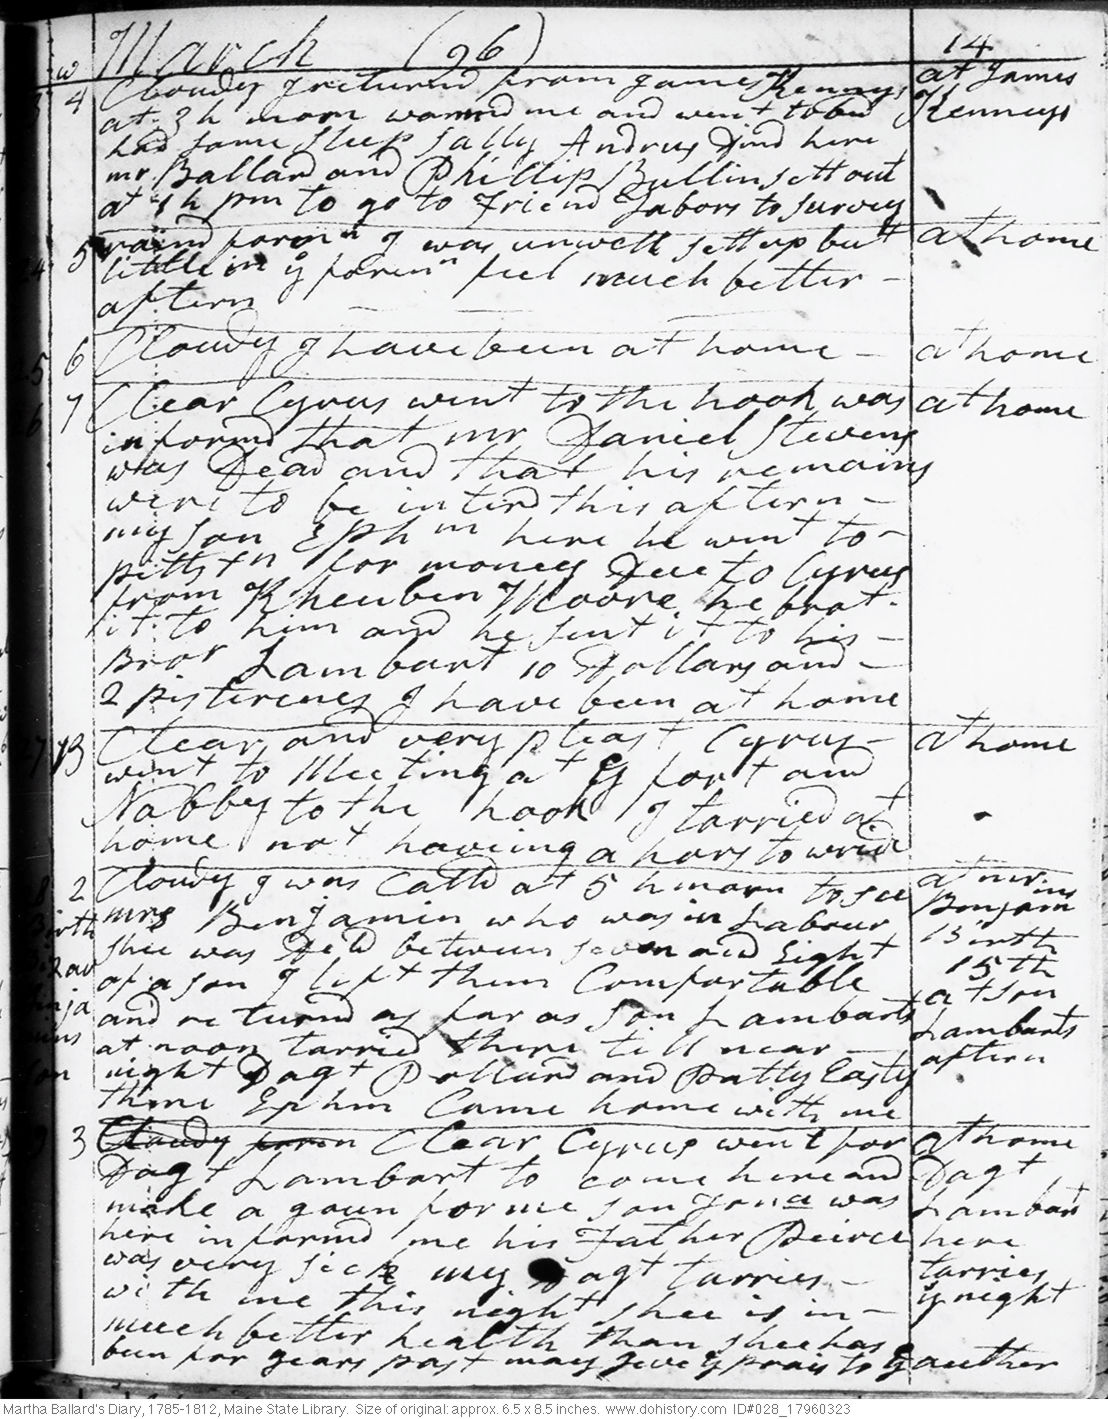 w March (96) 14
4 Cloudy I returnd from James Kennys at James
at 3 h morn warmd me and went to bed Kennys
had some sleep Sally Andrus Dind here
mr Ballard and Phillip Bullin sett out
at 1 h pm to go to Friend Jabors to survey
5 raind foren n I was unwell sett up but at home
little in ye foren n feel much better -
aftern
6 Cloudy I have been at home - at home
7 Clear Cyrus went to the hook was at home
informd that mr Daniel Stevens
was Dead and that his remains
were to be interd this aftern -
my son Ephm here he went to -
pittstn for money Due to Cyrus
from Rheuben Moore he brot
it to him and he sent it to his -
Bror Lambart 10 Dollars and -
2 pistereens I have been at home
Clear and very pleast Cyrus - at home
went to Meeting at ye fort and
Nabby to the hook I tarried at
home not haveing a hors to wride
8 2 Cloudy I was Calld at 5 h morn to see at mr
Birth mrs Benjamin who was in Labour Benjamins
shee was Deld between seven and Eight Birth
of a son I left them Comfortable 15th
and returnd as far as son Lambarts at son
at noon tarried there till near - Lambarts
night Dagt Pollard and Patty Easty aftern
there Ephm Came home with me
9 3 Cloudy foren Clear Cyrus went for at home
Dagt Lambart to come here and Dagt
make a goun for me son Jona was Lambart
here informd me his Father Peirce here
was very sick my Dagt tarries - tarries
with me this night shee is in - ye night
much better health than shee has
been for years past may I give ye prais to ye auther
Martha Ballard's Diary, 1785-1812, Maine State Library. Size of original: approx. 6.5 x 8.5 inches. www.dohistory.com ID#028_17960323